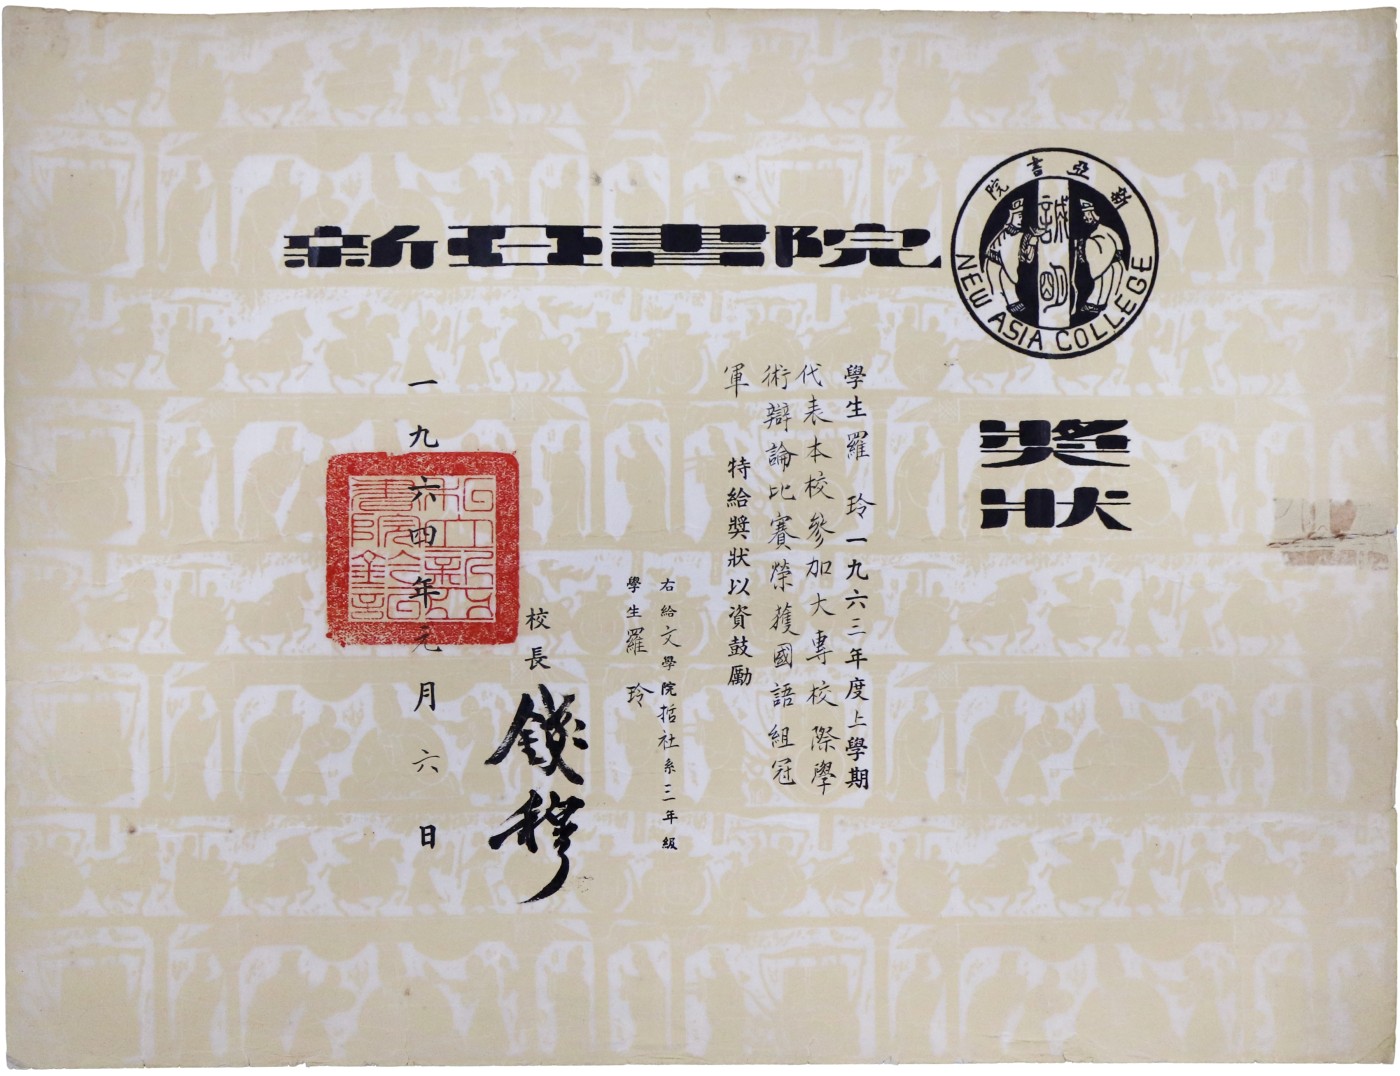 新亞書院
新亞書院
誠明
NEW ASIA COLLEGE
獎狀
學生羅 玲一九六三年度上學期
代表本校參加大專校際學
術辯論比賽榮獲國語組冠
軍 特給獎狀以資鼓勵
右給文學院哲社系三年級
學生羅 玲
校長 錢穆
一九六四年元月六日
私立新亞
書院鈐記